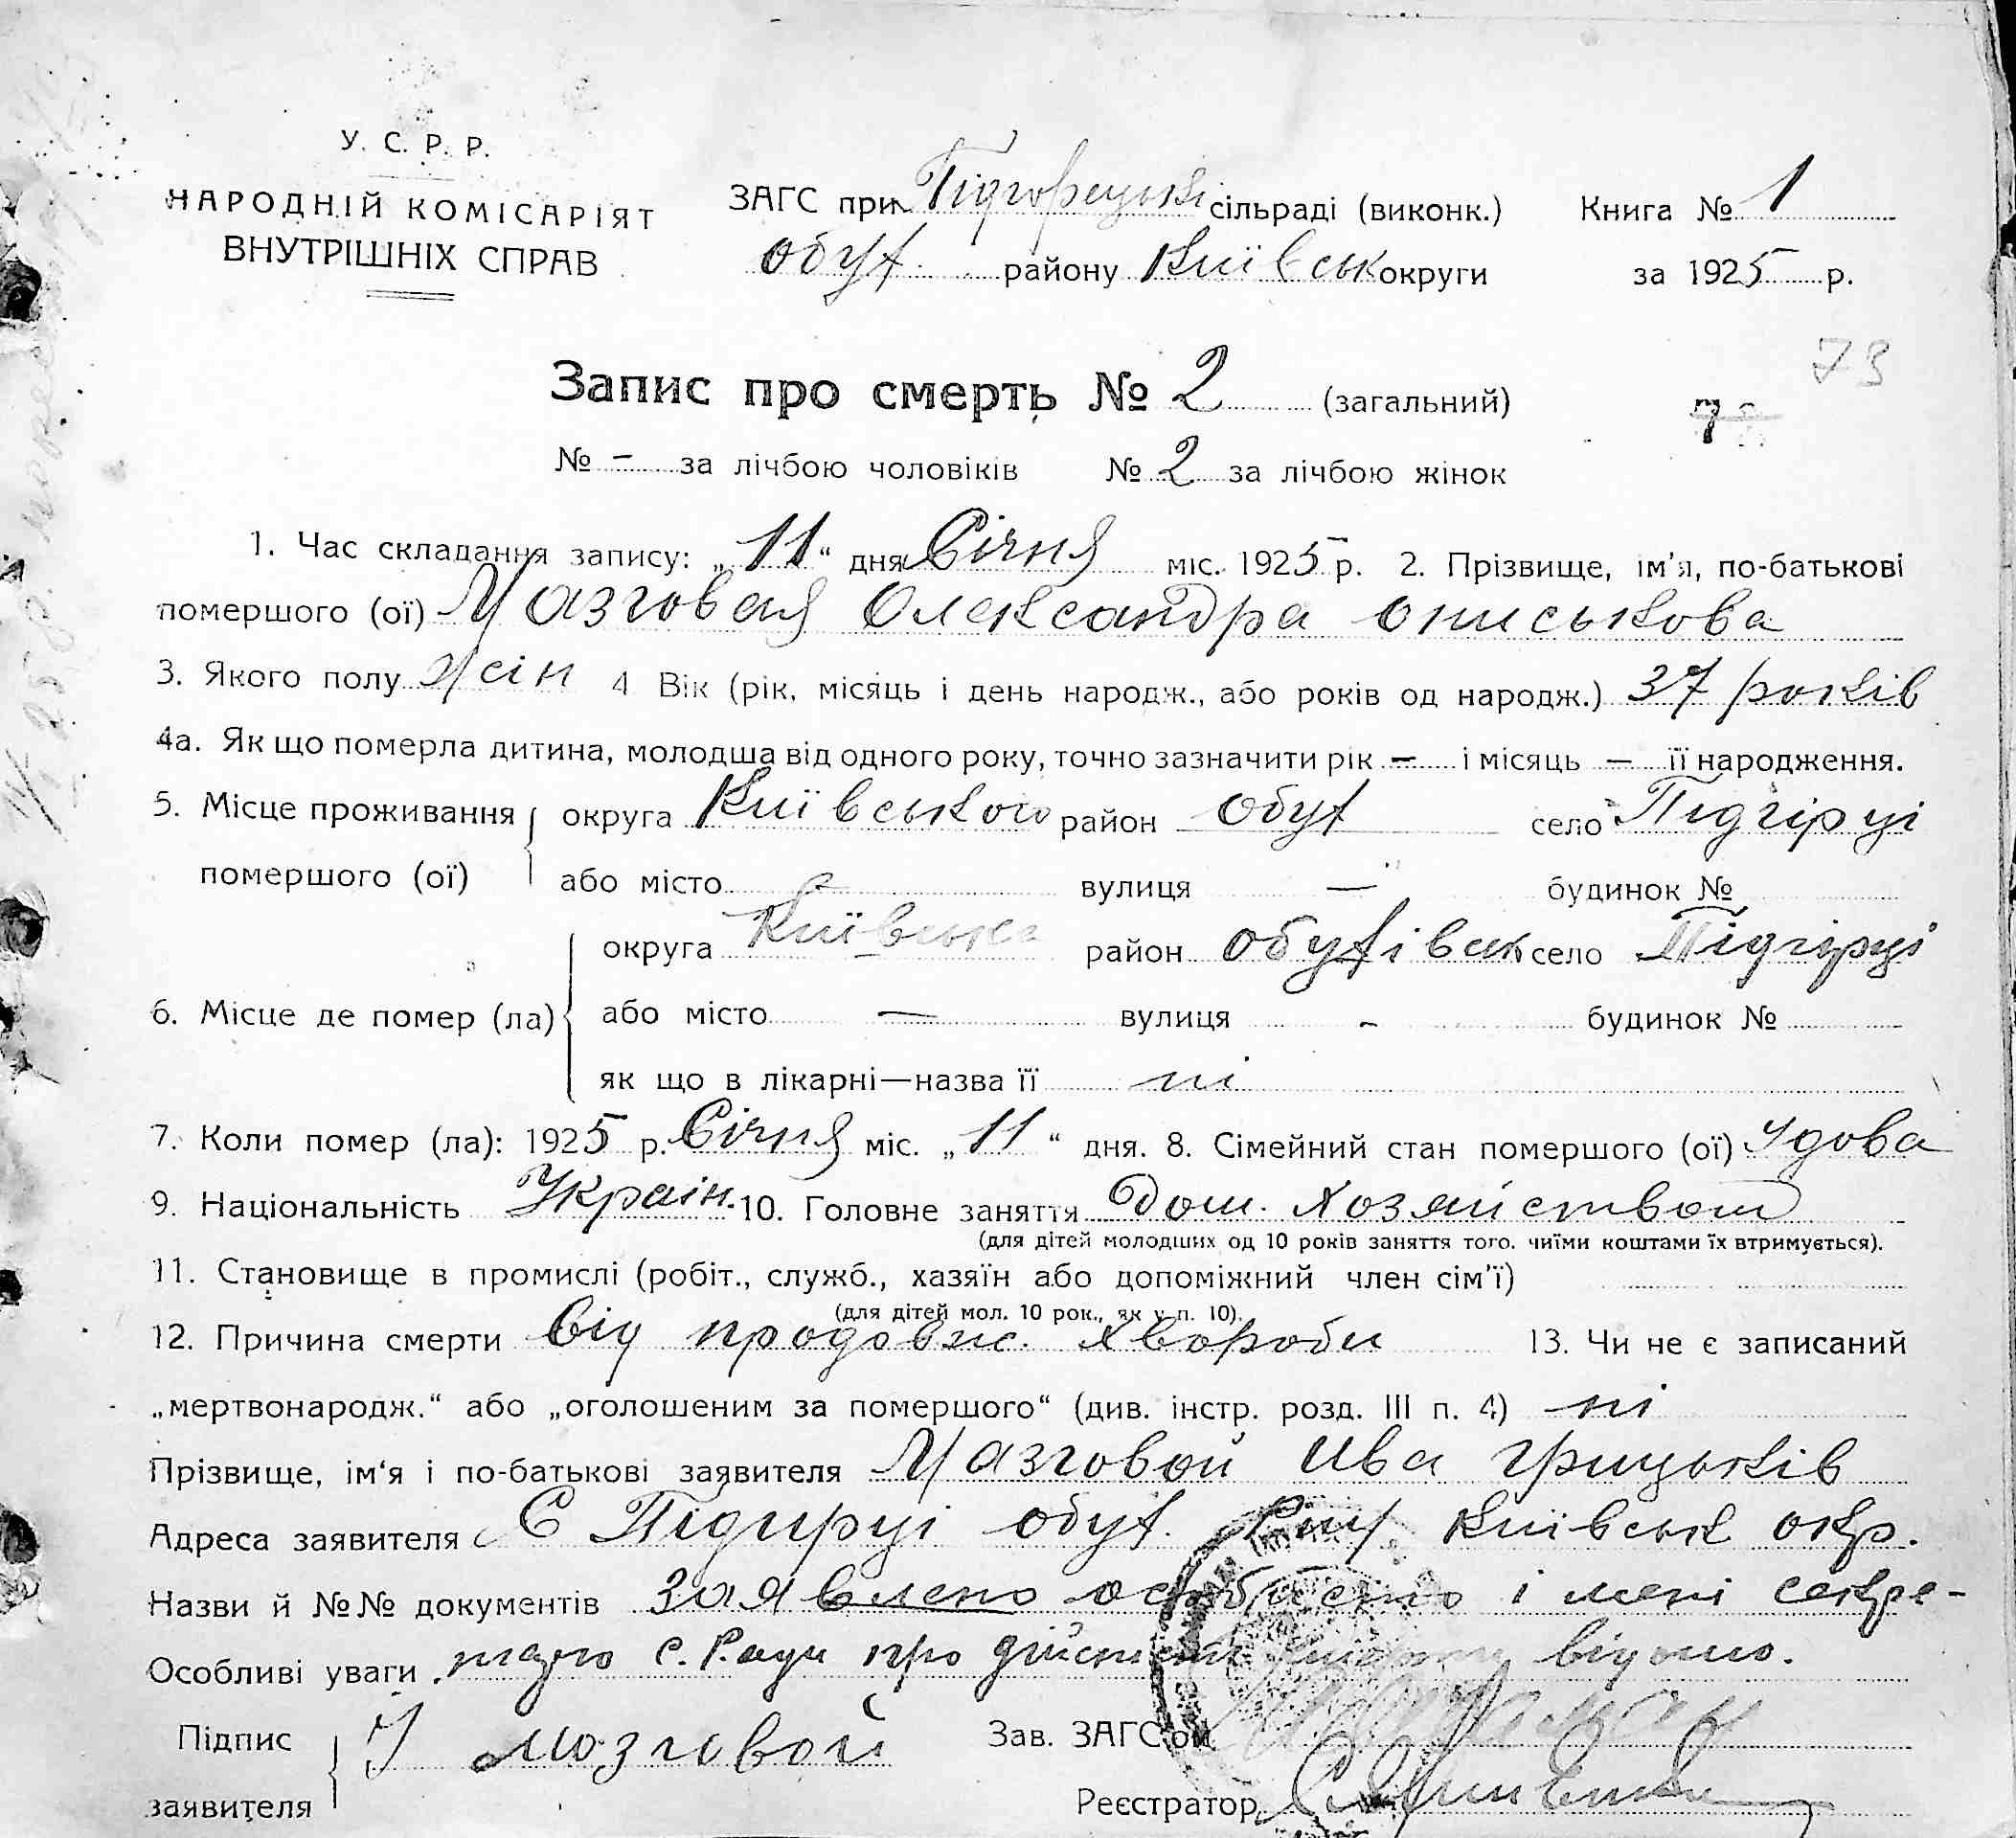 У. С. Р. Р.
НАРОДНІЙ КОМІСАРІЯТ
ВНУТРІШНІХ СПРАВ
ЗАГС при Підгорецькі сільраді (виконк.) Книга № 1
обух. району Київськ округи за 1925 р.
73
Запис про смерть № 2 (загальний)
7
№ – за лічбою чоловіків № 2 за лічбою жінок
1. Час складання запису: „11“ дня Січня міс. 1925 р. 2. Прізвище, ім'я, по-батькові
помершого (ої) Мазговая Олександра Ониськова
3. Якого полу жін 4 Вік (рік, місяць і день народж., або років од народж.) 37 років
4а. Як що померла дитина, молодша від одного року, точно зазначити рік — і місяць — її народження.
5. Місце проживання округа Київського район Обух село Підгірці
помершого (ої) або місто — вулиця — будинок №
округа Київська район Обухівськ село Підгірці
6. Місце де помер (ла) або місто — вулиця - будинок №
як що в лікарні—назва її ні
7. Коли помер (ла): 1925 р. Січня міс. „11“ дня. 8. Сімейний стан помершого (ої) Удова
9. Національність Украін. 10. Головне заняття Дом. Хозяйством
(для дітей молодших од 10 років заняття того, чиїми коштами їх втримується).
11. Становище в промислі (робіт., служб., хазяїн або допоміжний член сім'ї)
(для дітей мол. 10 рок., як у п. 10).
12. Причина смерти Від продовж. хвороби 13. Чи не є записаний
„мертвонародж.“ або „оголошеним за помершого“ (див. інстр. розд. III п. 4) ні
Прізвище, ім'я і по-батькові заявителя Мазговой Ива Грицьків
Адреса заявителя С Підгирці обух. Київськ окр.
Назви й №№ документів Заявлено особисто і мені секре-
Особливі уваги тарю с. Ради про відомо.
Підпис У Мозговой Зав. ЗАГС'ом
заявителя Реєстратор